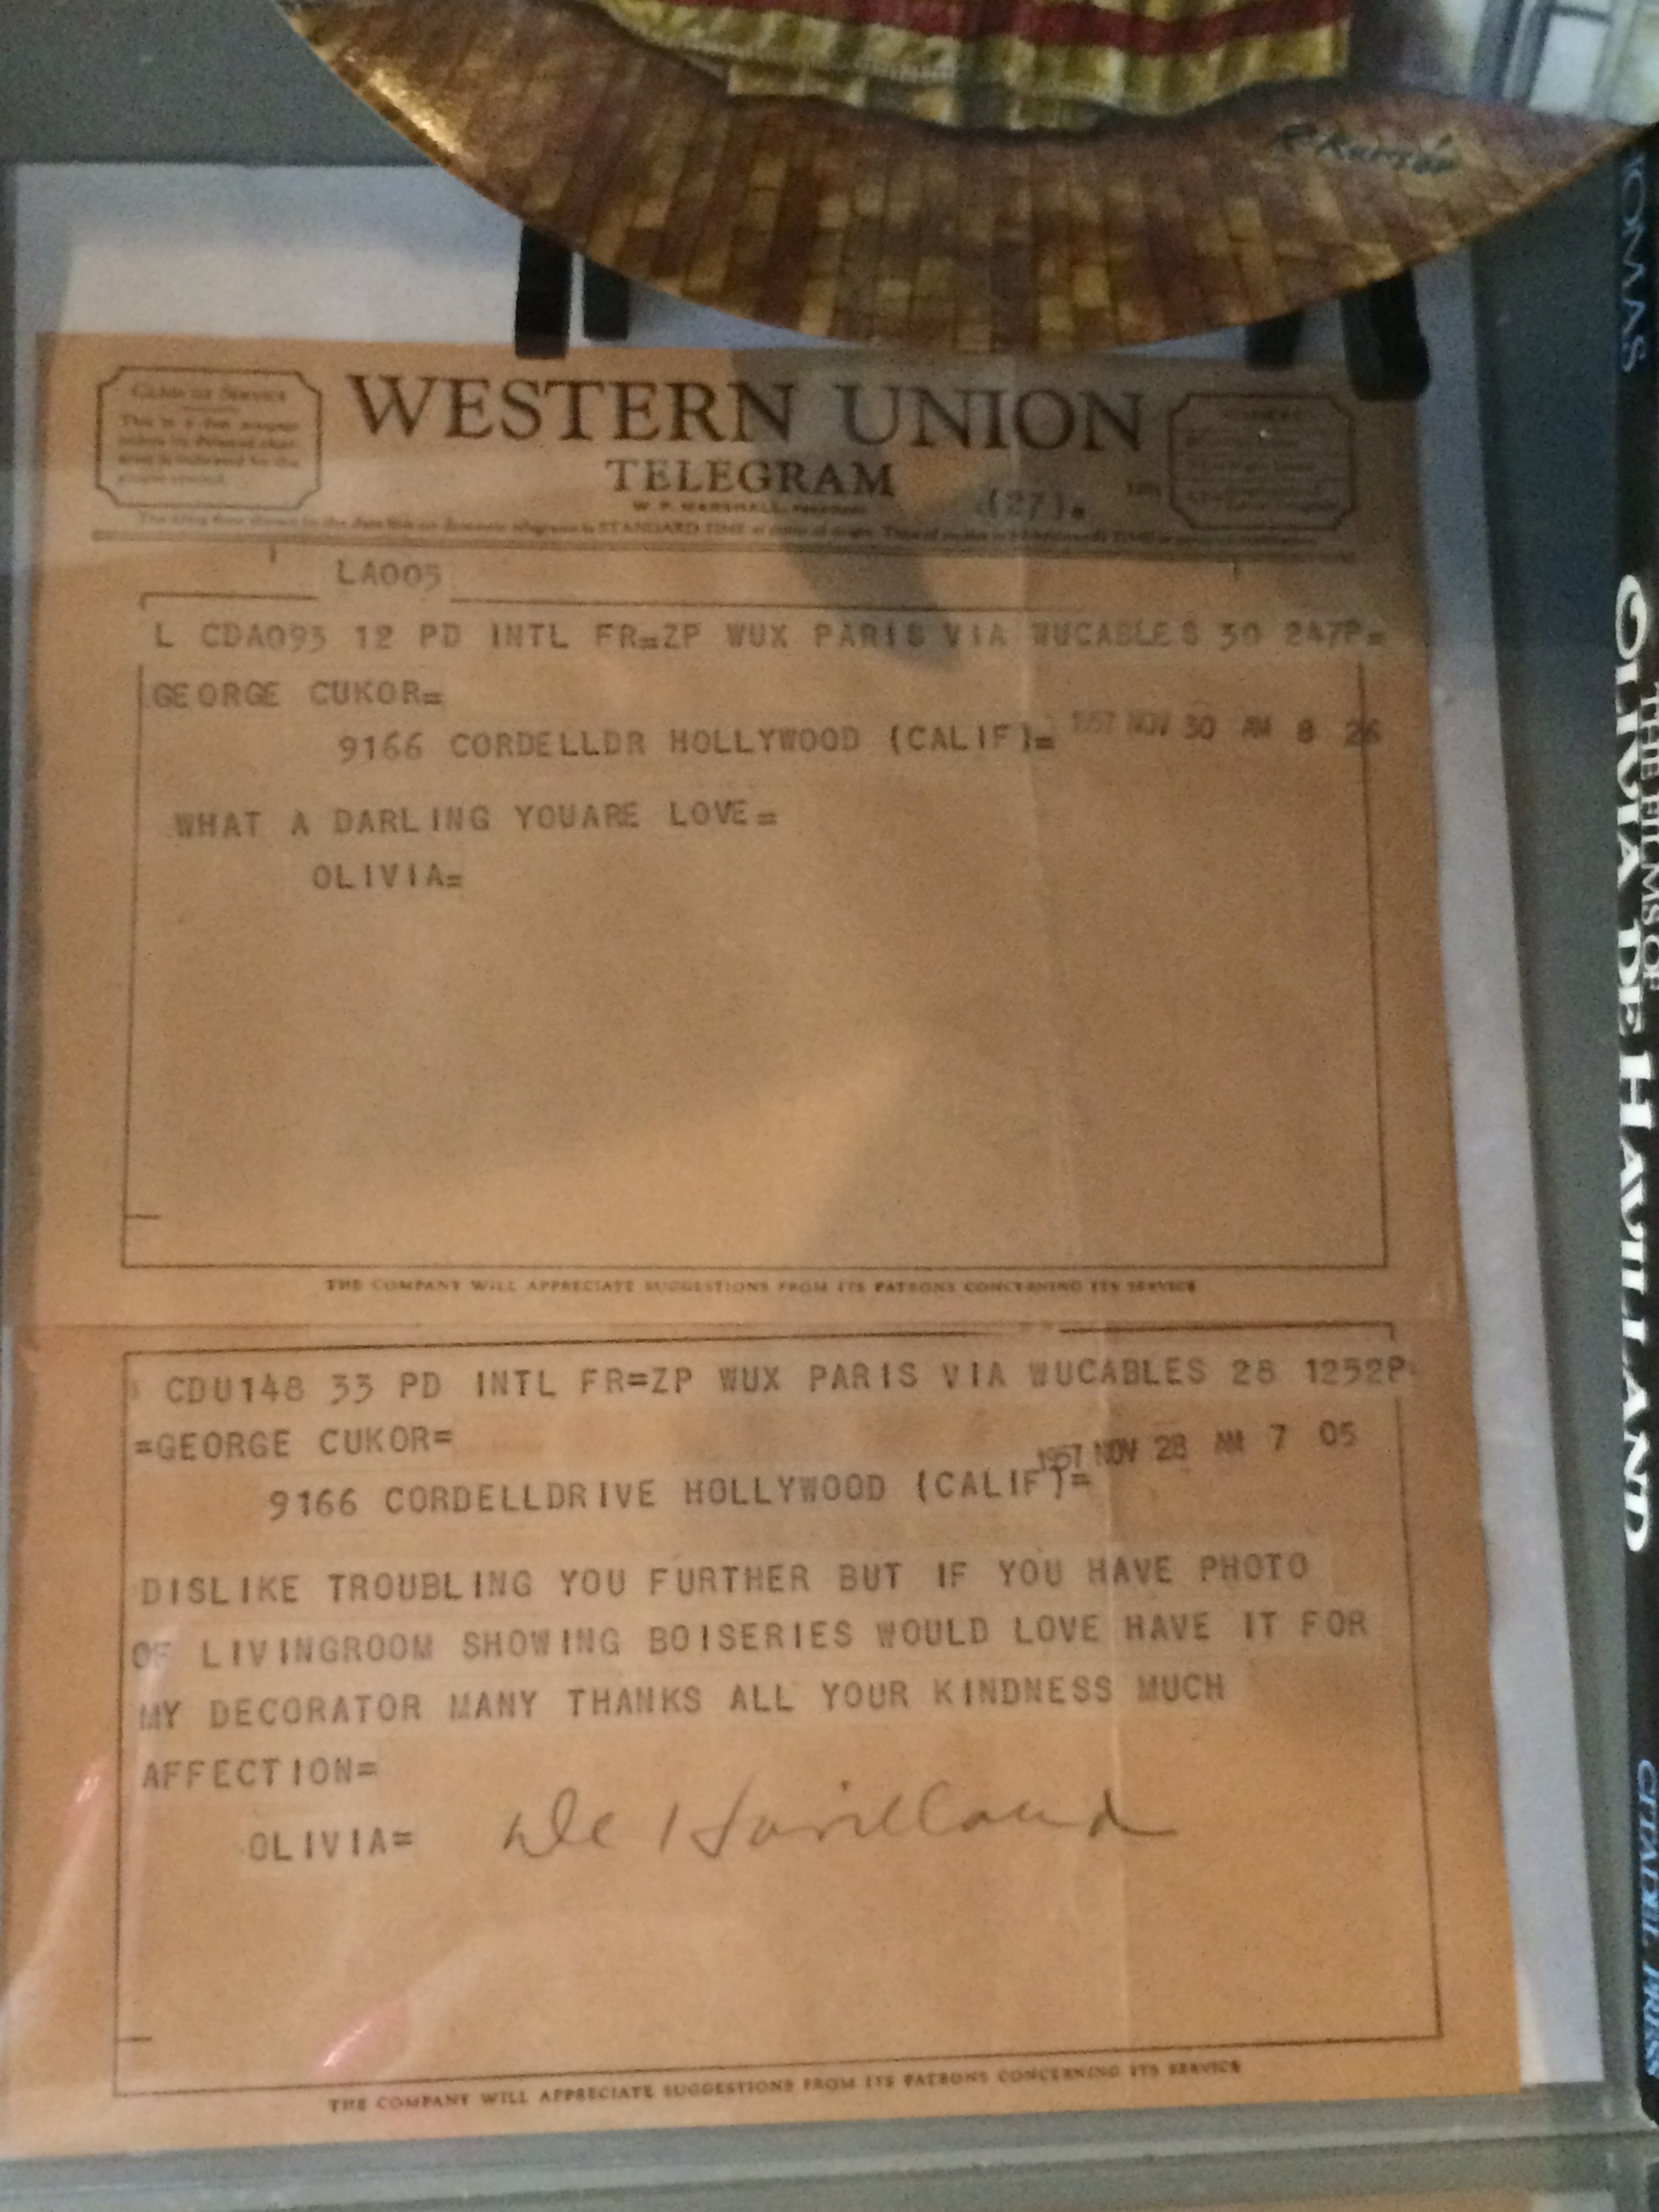 R Kursár
WESTERN UNION
TELEGRAM
W. P. MARSHALL, PRESIDENT
(27).
CLASS OF SERVICE
This is a fast message
unless its deferred char-
acter is indicated by the
proper symbol.
LA005
L CDA093 12 PD INTL FR=ZP WUX PARIS VIA WUCABLES 30 247P=
GEORGE CUKOR=
9166 CORDELLDR HOLLYWOOD (CALIF)=
1957 NOV 30 AM 8 26
WHAT A DARLING YOUARE LOVE=
OLIVIA=
THE COMPANY WILL APPRECIATE SUGGESTIONS FROM ITS PATRONS CONCERNING ITS SERVICE
CDU148 33 PD INTL FR=ZP WUX PARIS VIA WUCABLES 28 1252P
=GEORGE CUKOR=
1957 NOV 28 AM 7 05
9166 CORDELLDRIVE HOLLYWOOD (CALIF)=
DISLIKE TROUBLING YOU FURTHER BUT IF YOU HAVE PHOTO
OF LIVINGROOM SHOWING BOISERIES WOULD LOVE HAVE IT FOR
MY DECORATOR MANY THANKS ALL YOUR KINDNESS MUCH
AFFECTION=
OLIVIA= De Havilland
THE COMPANY WILL APPRECIATE SUGGESTIONS FROM ITS PATRONS CONCERNING ITS SERVICE
THOMAS
THE FILMS OF
OLIVIA DE HAVILLAND
CITADEL PRESS